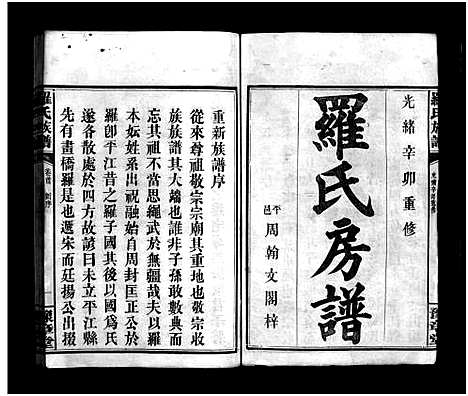 光緒辛卯重修
羅氏房譜
平邑周翰文閣梓
羅氏族譜
重新族譜序
從來尊祖敬宗宗廟其重地也敬宗收
族族譜其大端也誰非子孫敢數典而
忘其祖不當思繩武於無疆哉夫以羅
本妘姓系出祝融始自周封匡正公於
羅卽平江昔之羅子國其後以國爲氏
遂各散處於四方故諺曰未立平江縣
先有晝橋羅是也遞宋而廷揚公出掇
羅氏族譜